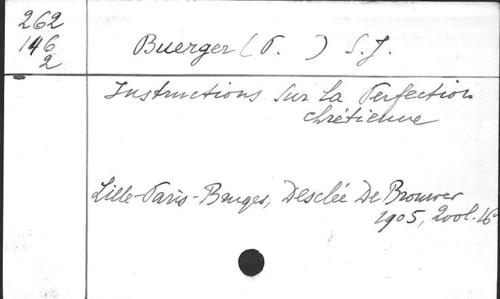 262
146
2
Buerger (P. ) S.J.
Instructions sur la Perfection
chrétienne
Lille-Paris-Bruges, Desclée De Brouwer
1905, 2 vol. 16°